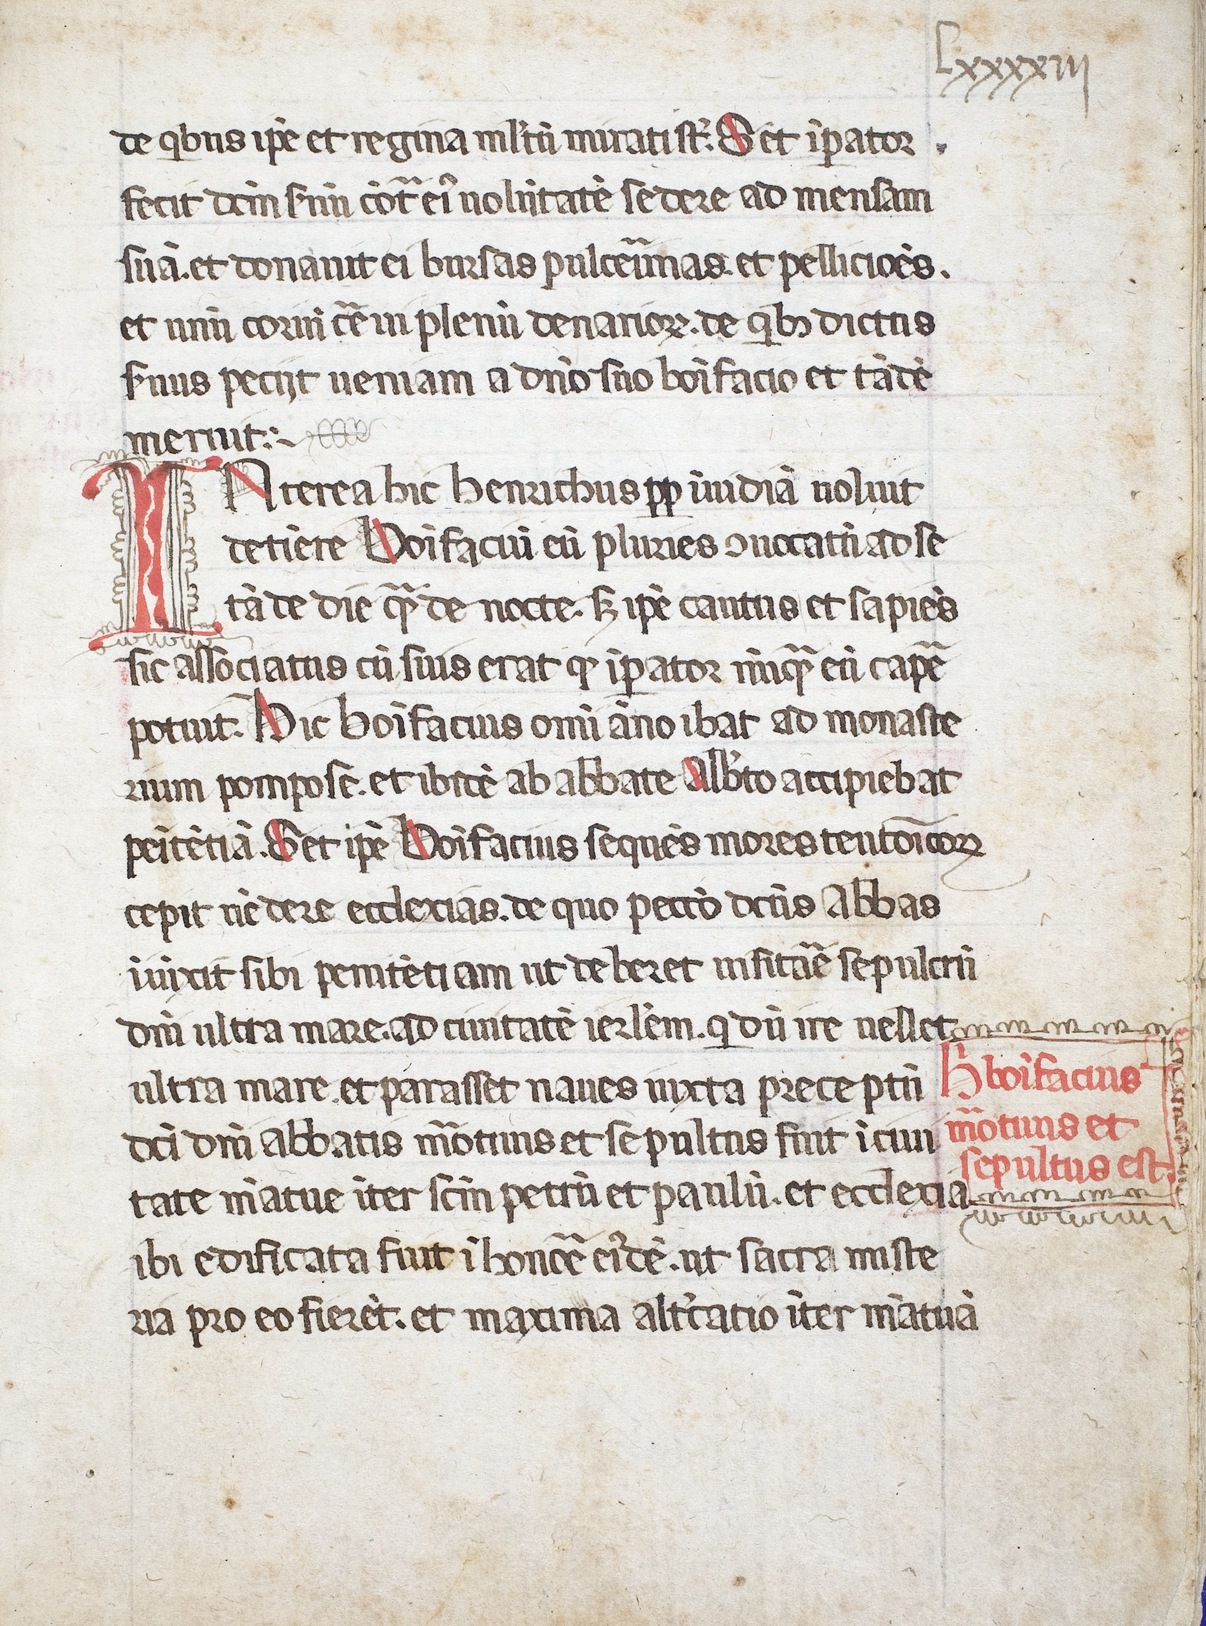 Lxxxxiii
de qbus ip̄e et regina ml̄tū mirati st̄. Set ip̄ator
fecit dcm̄ ſ̄uū cōt̄ eiꝰ uolūtatē sedere ad mensam
suā. et donauit ei bursas pulceīmas. et pellicioēs.
et unū cornu cē iu plenū denarioꝝ. de qbꝫ dictus
ſ̄uus peciit ueniam a dnō suo boīfacio et tādē
meruit:~
INterea hic henrichus pp īuidiā uoluit
detiēre Boīfaciū eū pluries ɔuocatū ad sē
tā de die qͣ de nocte. sꝫ ipē cautus et sapiēs
sic associatus cū suis erat qͥ ip̄ator nūqͣ eū cap̄e
potuit. Hic boīfacius omī āno ibat ad monaste
rium pompose. et ibidē ab abbate Alb̄to accipiebat
peītētiā. Set ipē Boīfacius sequēs mores teutoīcoꝝ
cepit uēdere ecclexias. de quo peccō dcūs Abbas
īiūxit sibi penitētiam ut deberet uisitāe sepulcrū
dnī ultra mare. ad ciuitatē ierlēm. q dū ire uellet
ultra mare. et parasset naues iuxta preceptū
dcī dnī abbatis m̄otuus et sepultus fuit ī ciui
tate mātue īter scm̄ petrū et paulū. et ecclexia
ibi edificata fuit ī honoē eiꝰdē. ut sacra miste
ria pro eo fierēt. et maxima alt̄catio īter mātuā
H̄ boīfacius
m̄otuus et
sepultus est.